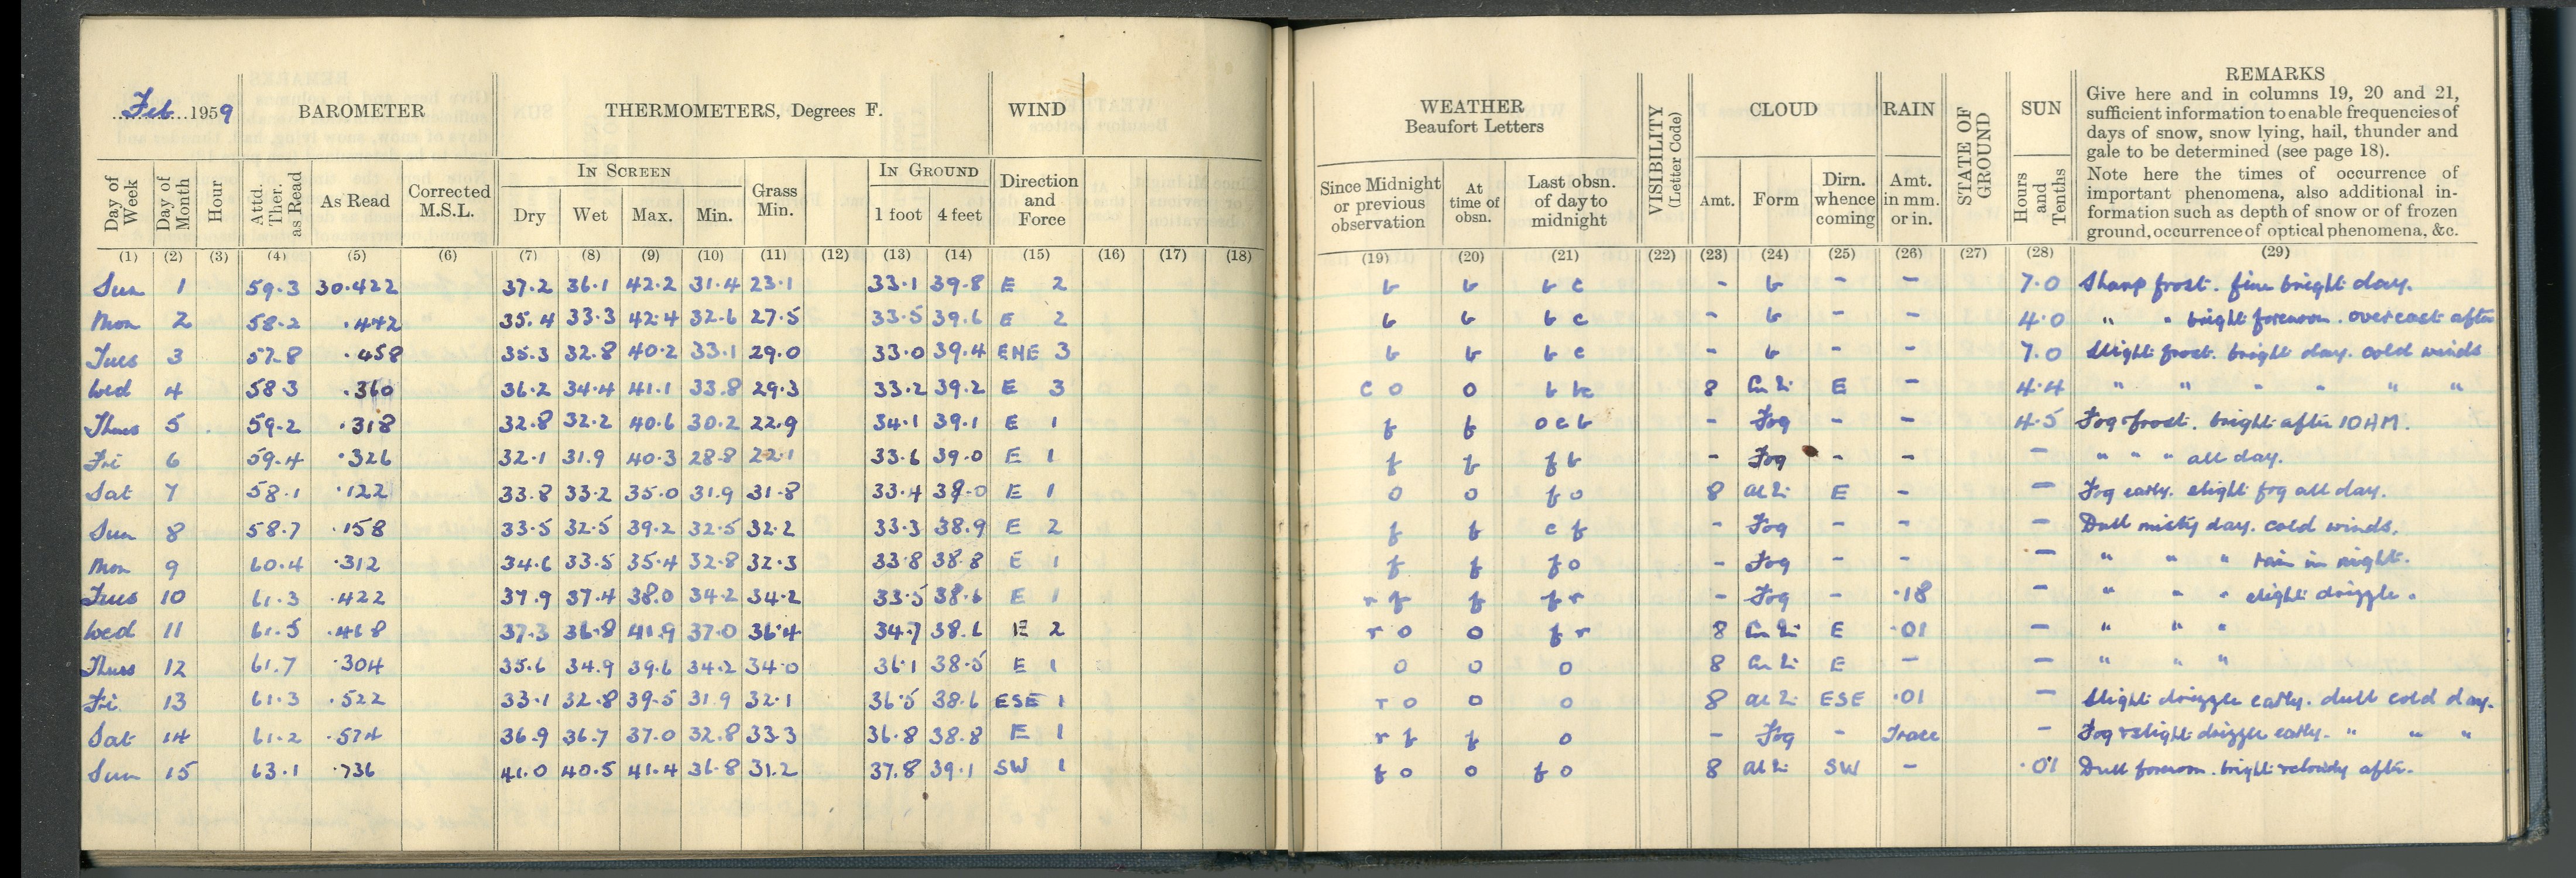 Feb 1959
BAROMETER
THERMOMETERS, Degrees F.
WIND
Day of Week
Day of Month
Hour
Attd. Ther. as Read
As Read
Corrected M.S.L.
IN SCREEN
Dry
Wet
Max.
Min.
Grass Min.
IN GROUND
1 foot
4 feet
Direction and Force
(1) (2) (3) (4) (5) (6) (7) (8) (9) (10) (11) (12) (13) (14) (15) (16) (17) (18)
Sun 1 59.3 30.422 37.2 36.1 42.2 31.4 23.1 33.1 39.8 E 2
Mon 2 58.2 .442 35.4 33.3 42.4 32.6 27.5 33.5 39.6 E 2
Tues 3 57.8 .458 35.3 32.8 40.2 33.1 29.0 33.0 39.4 ENE 3
Wed 4 58.3 .360 36.2 34.4 41.1 33.8 29.3 33.2 39.2 E 3
Thurs 5 59.2 .318 32.8 32.2 40.6 30.2 22.9 34.1 39.1 E 1
Fri 6 59.4 .326 32.1 31.9 40.3 28.8 22.1 33.6 39.0 E 1
Sat 7 58.1 .122 33.8 33.2 35.0 31.9 31.8 33.4 39.0 E 1
Sun 8 58.7 .158 33.5 32.5 39.2 32.5 32.2 33.3 38.9 E 2
Mon 9 60.4 .312 34.6 33.5 35.4 32.8 32.3 33.8 38.8 E 1
Tues 10 61.3 .422 37.9 37.4 38.0 34.2 34.2 33.5 38.6 E 1
Wed 11 61.5 .468 37.3 36.8 41.9 37.0 36.4 34.7 38.6 E 2
Thurs 12 61.7 .304 35.6 34.9 39.6 34.2 34.0 36.1 38.5 E 1
Fri 13 61.3 .522 33.1 32.8 39.5 31.9 32.1 36.5 38.6 ESE 1
Sat 14 61.2 .574 36.9 36.7 37.0 32.8 33.3 36.8 38.8 E 1
Sun 15 63.1 .736 41.0 40.5 41.4 36.8 31.2 37.8 39.1 SW 1
WEATHER
Beaufort Letters
Since Midnight or previous observation
At time of obsn.
Last obsn. of day to midnight
VISIBILITY (Letter Code)
CLOUD
Amt.
Form
Dirn. whence coming
RAIN
Amt. in mm. or in.
STATE OF GROUND
SUN
Hours and Tenths
REMARKS
Give here and in columns 19, 20 and 21,
sufficient information to enable frequencies of
days of snow, snow lying, hail, thunder and
gale to be determined (see page 18).
Note here the times of occurrence of
important phenomena, also additional in-
formation such as depth of snow or of frozen
ground, occurrence of optical phenomena, &c.
(19) (20) (21) (22) (23) (24) (25) (26) (27) (28) (29)
b b b c - b - - 7.0 Sharp frost. fine bright day.
b b b c - b - - 4.0 " " bright forenoon. overcast after
b b b c - b - - 7.0 Slight frost. bright day. cold winds
c o o b 8 E - 4.4 " " " " " "
f f o c b - Fog - - 4.5 Fog & frost. bright after 10 AM.
f f f b - Fog - - - " " " all day.
o o f o 8 E - - Fog early. slight fog all day.
f f c f - Fog - - - Dull misty day. cold winds.
f f f o - Fog - - - " " " rain in night.
r f f f r - Fog - .18 - " " " slight drizzle.
r o o f r 8 E .01 - " " "
o o o 8 E - - " " "
r o o o 8 ESE .01 - Slight drizzle early. dull cold day.
r f f o - Fog - Trace - Fog & slight drizzle early. " " "
f o o f o 8 SW - .01 Dull forenoon. bright & cloudy after.